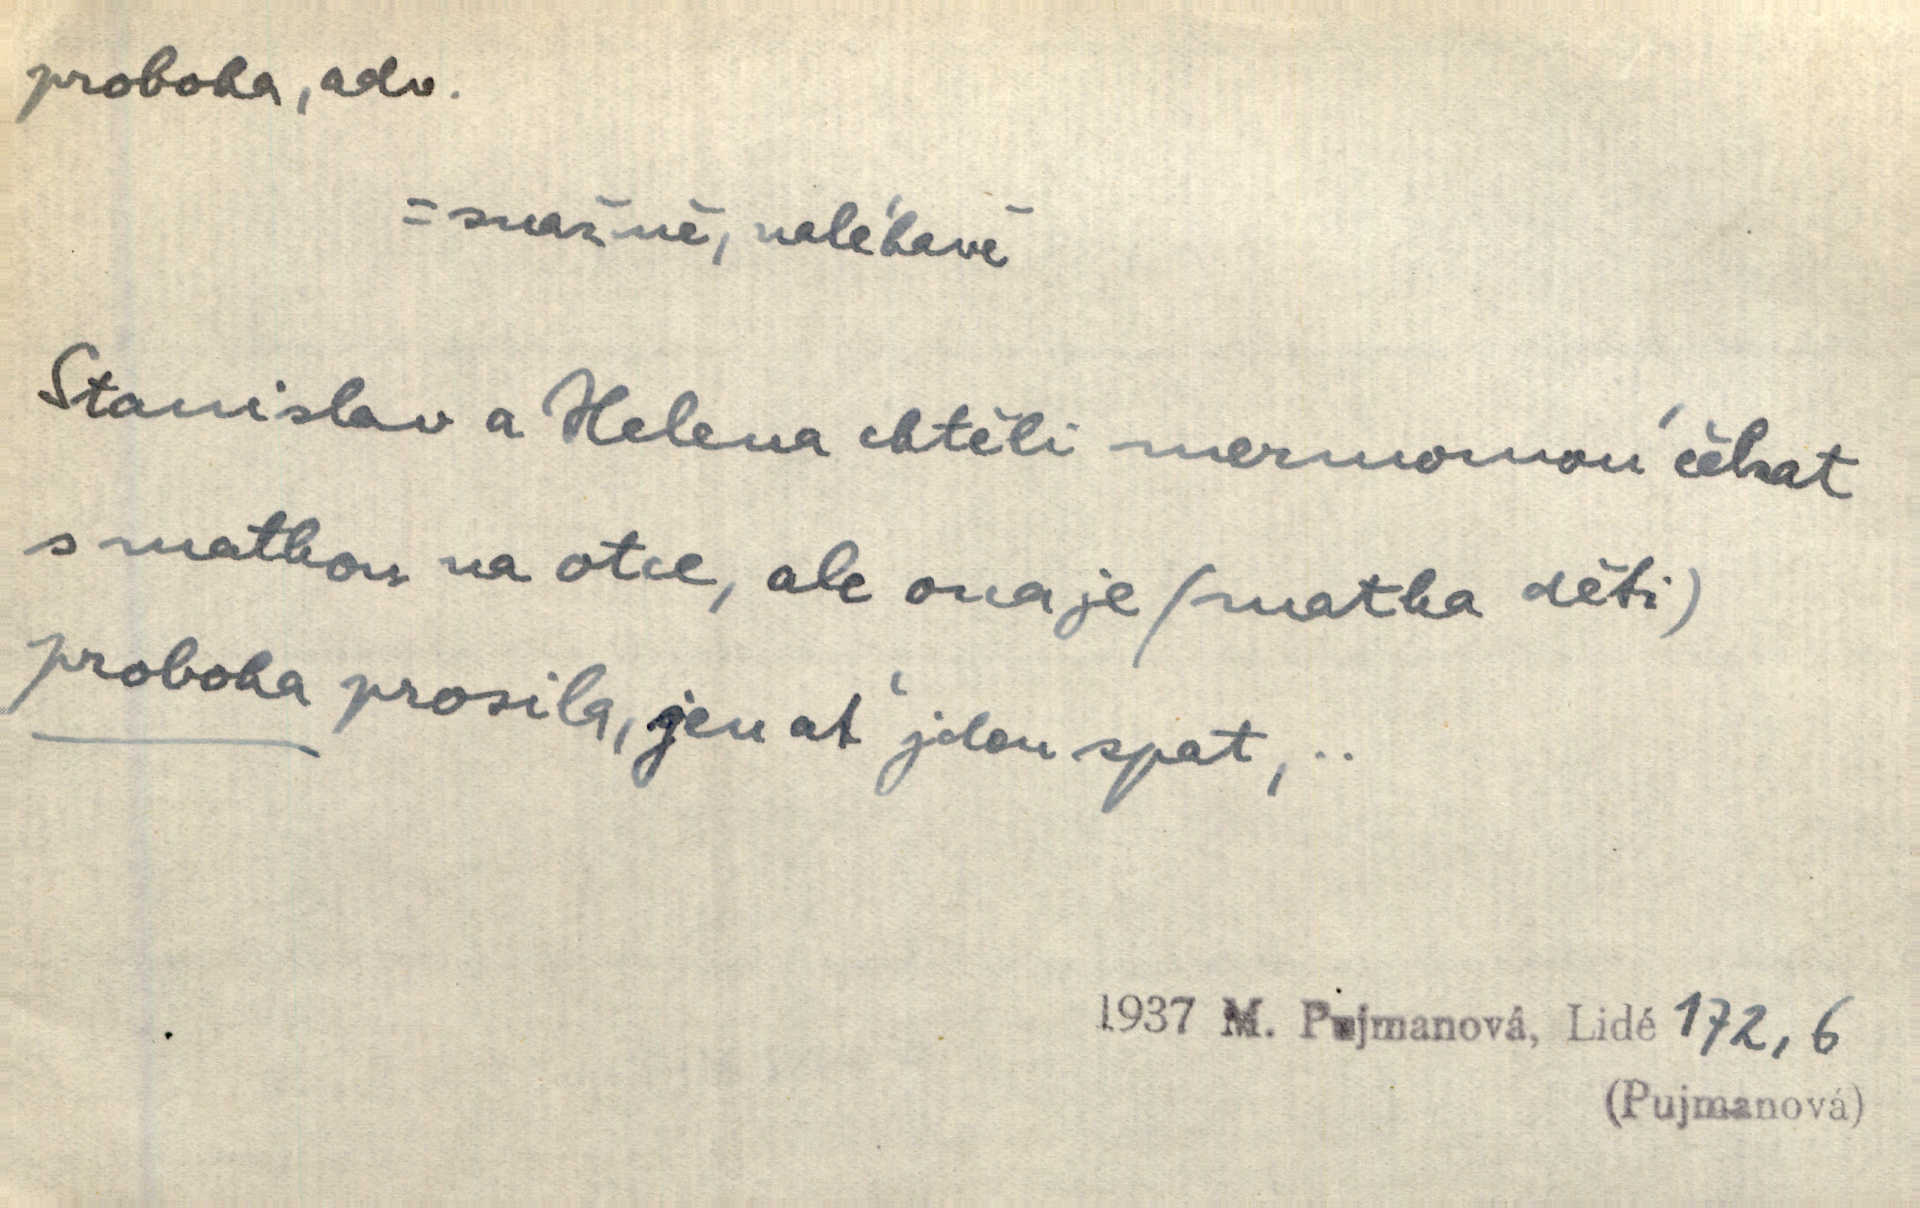 proboha, adv.
= snažně, naléhavě
Stanislav a Helena chtěli mermomoú čekat
s matkou na otce, ale ona je (matka děti)
proboha prosila, jen ať jdou spat, ..
1937 M. Pujmanová, Lidé 172, 6
(Pujmanová)